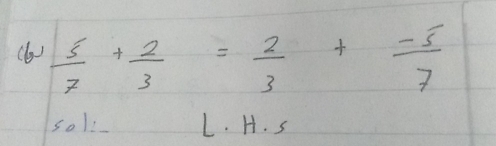 (b) 5/7 + 2/3 = 2/3 + -5/7
sol:- L.H.s